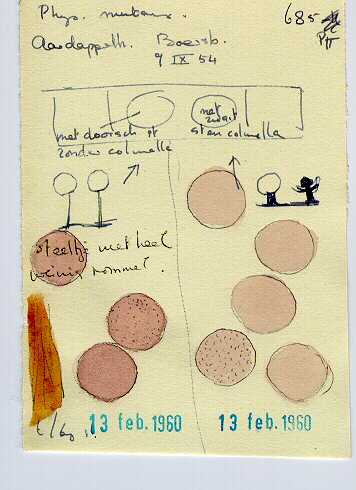 Phys. nutans.
685
Aardappelh. Boersb.
9 IX 54
met doorsch
zonder columella
met
stan columella
steeltje met heel
weinig rommel.
13 feb. 1960
13 feb. 1960